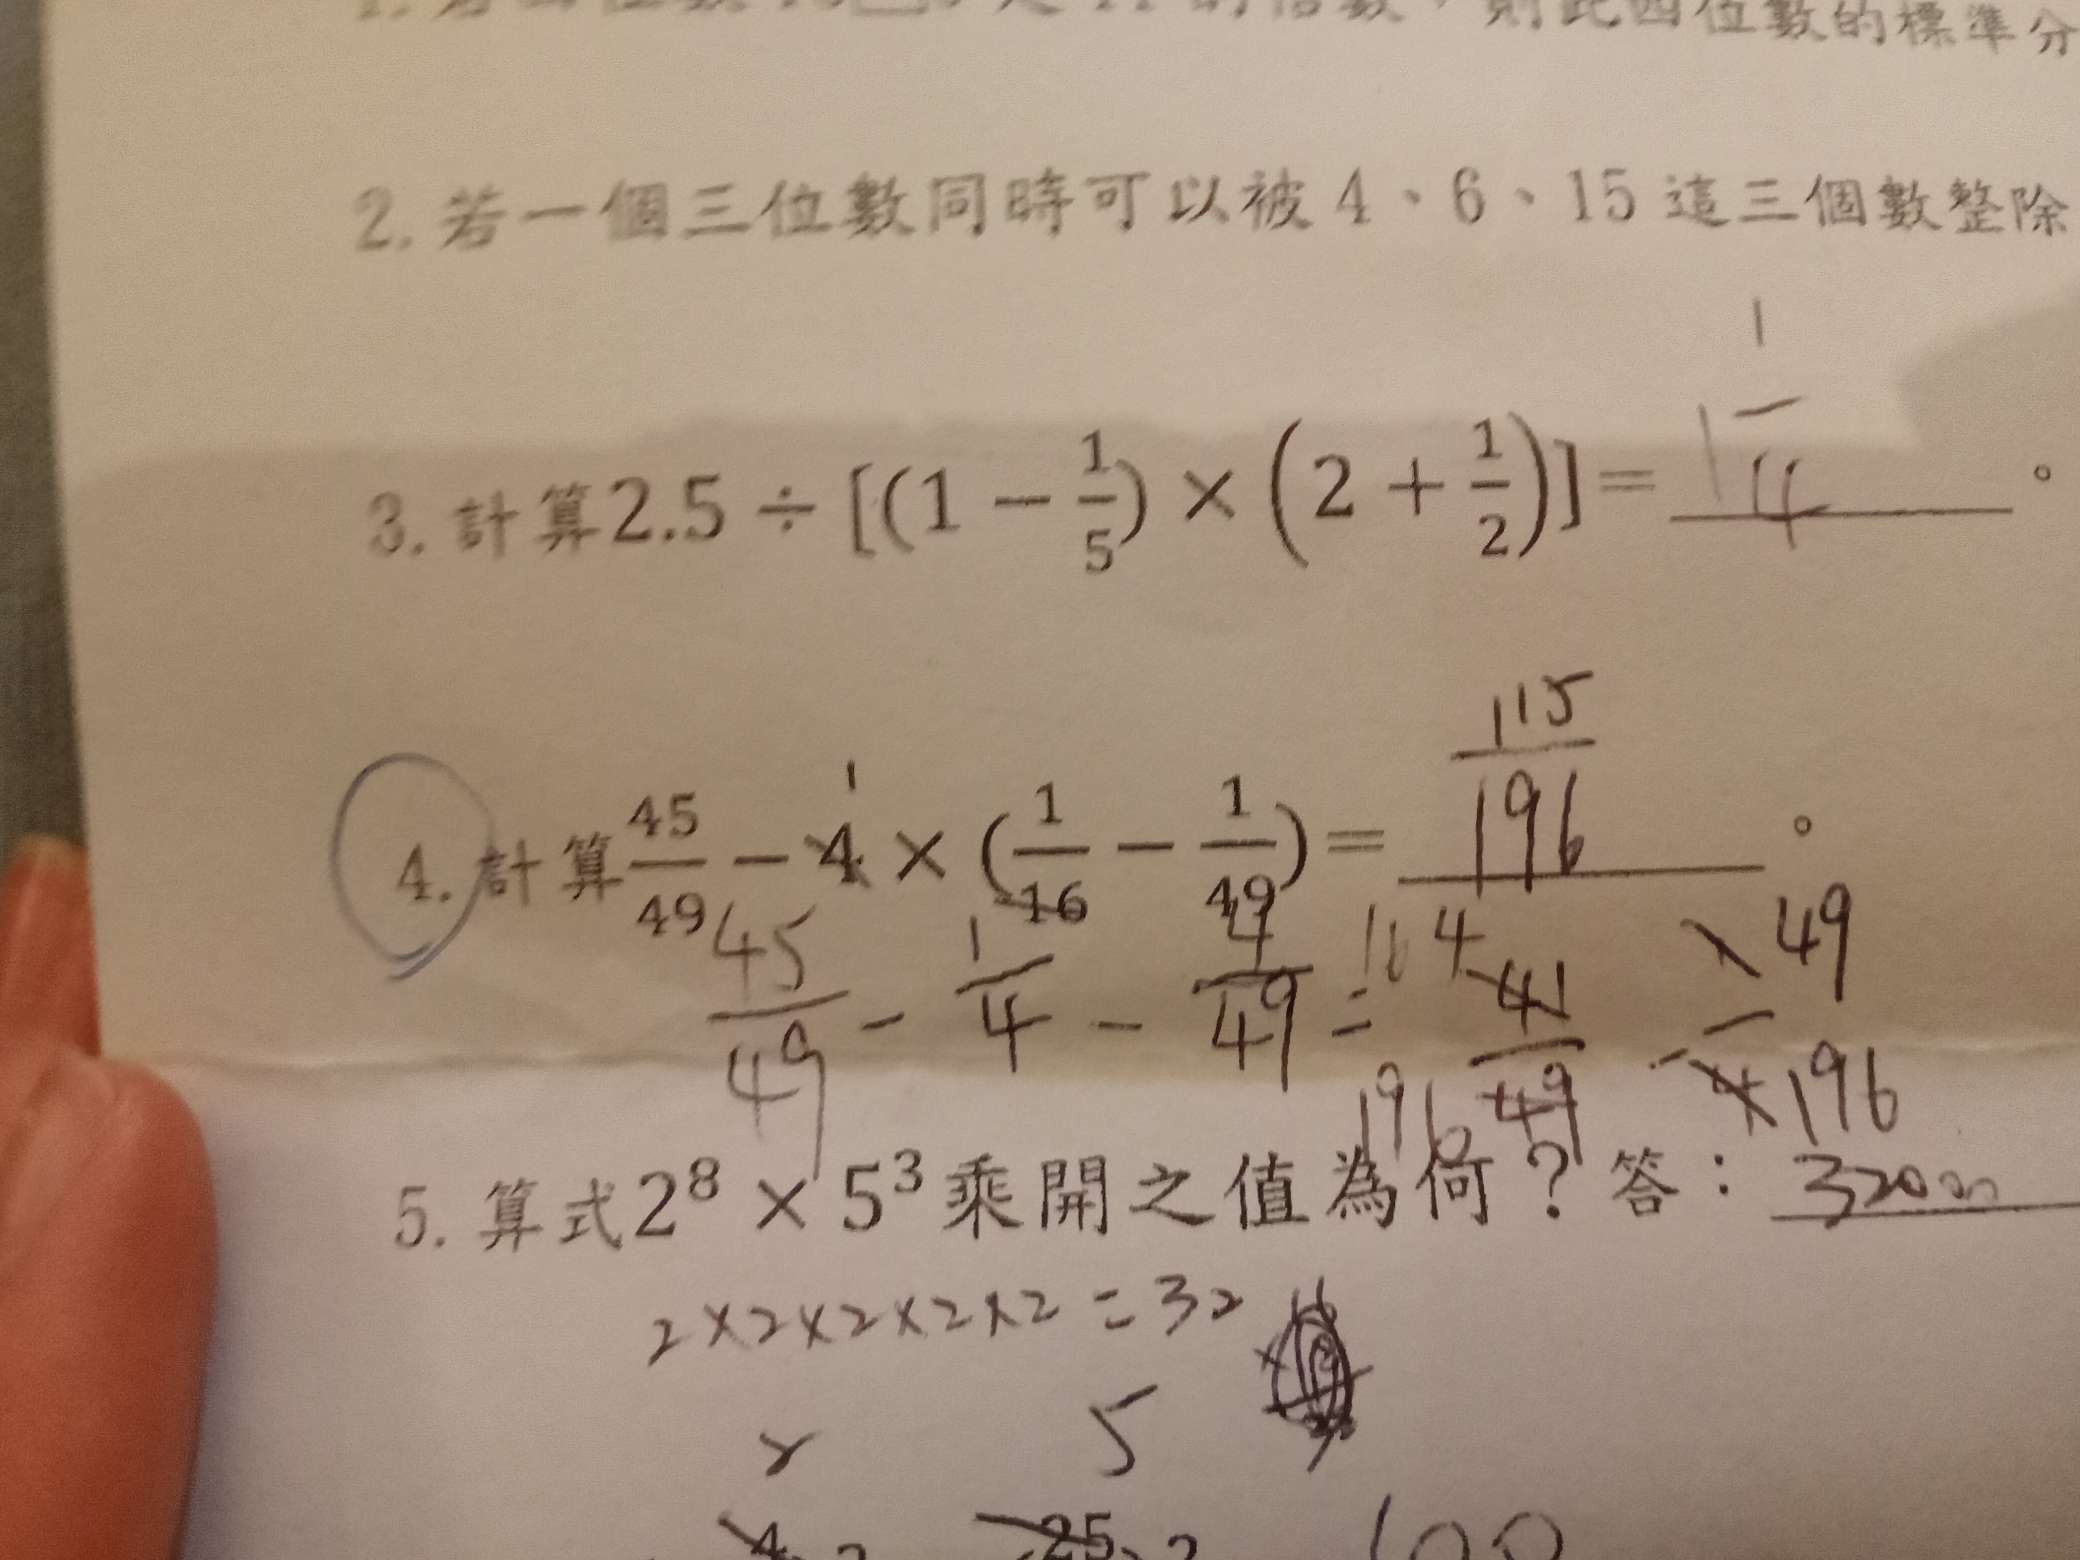 的倍數，則此四位數的標準分
2. 若一個三位數同時可以被 4、6、15 這三個數整除
3. 計算 2.5 ÷ [(1 − 1/5) × (2 + 1/2)] = 1 1/4 。
4. 計算 45/49 − 4 × (1/16 − 1/49) = 115/196 。
1
45/49 - 1/4 - 4/49 = 164/196 41/49 - 49/196
5. 算式 2⁸ × 5³ 乘開之值為何？答：32000
2×2×2×2×2=32
5
4 25 100